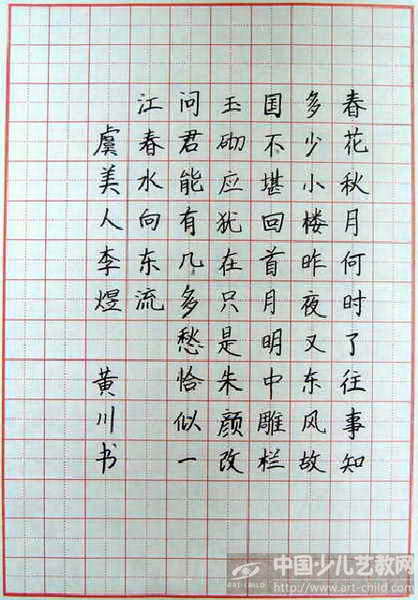 春花秋月何时了往事知
多少小楼昨夜又东风故
国不堪回首月明中雕栏
玉砌应犹在只是朱颜改
问君能有几多愁恰似一
江春水向东流
虞美人李煜 黄川书
中国少儿艺教网
ART-CHILD
http://www.art-child.com